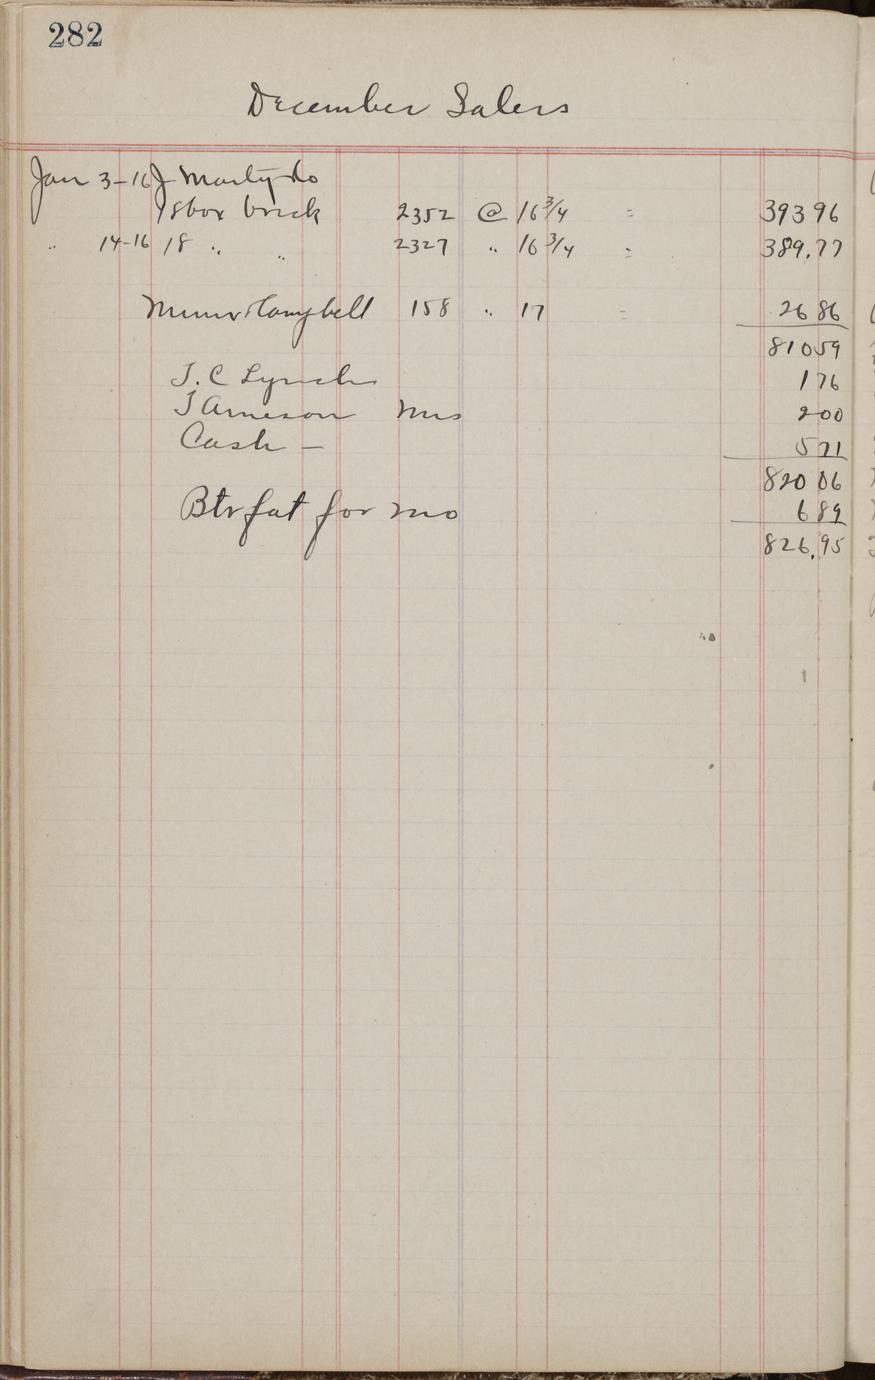 282
December Salers
Jan 3-16 J Marty Co
18 box brick 2352 @ 16 3/4 = 393 96
" 14-16 18 " " 2327 " 16 3/4 = 389.77
Campbell 158 " 17 = 26 86
810 59
J. C Lynch 1 76
Mrs 2 00
Cash — 5 71
820 06
Btr fat for mo 6 89
826.95